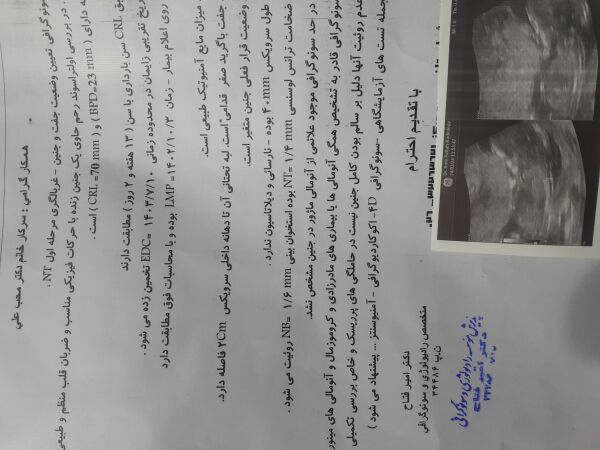 همکار گرامی : سرکار خانم دکتر محب علی
سونوگرافی تعیین وضعیت جفت و جنین - غربالگری مرحله اول NT .
. در بررسی اولتراسوند رحم حاوی یک جنین زنده با حرکات فیزیکی مناسب و ضربان قلب منظم و طبیعی
ه دارای ( BPD=23 mm ) و ( CRL =70 mm ) است .
ق CRL سن بارداری با سن ( ۱۳ هفته و ۲ روز ) مطابقت دارند
ریخ تقریبی زایمان در محدوده زمانی EDC= ۱۴۰۳/۷/۱۰ تخمین زده می شود .
روی اعلام بیمار - زمان LMP =۱۴۰۲/۱۰/۳ بوده و با محاسبات فوق مطابقت دارد
میزان مایع آمنیوتیک طبیعی است.
جفت باگرید صفر قدامی است. لبه تحتانی آن تا دهانه داخلی سرویکس ۲Cm فاصله دارد.
وضعیت قرار فعلی جنین متغیر است.
طول سرویکس ۴۰ mm بوده - نارسائی و دیلاتاسیون ندارد .
ضخامت ترانس لوسنسی NT= ۱/۴ mm بوده استخوان بینی NB= ۱/۶ mm روئیت می شود .
در حد سونوگرافی موجود علائمی از آنومالی ماژور در جنین مشخص نشد.
سونوگرافی قادر به تشخیص همگی آنومالی ها یا بیماری های مادرزادی و کروموزمال و آنومالی های مینور
عدم رویت آنها دلیل بر سالم بودن کامل جنین نیست در حاملگی های پرریسک و خاص بررسی تکمیلی
جمله تست های آزمایشگاهی -سونوگرافی ۴D- اکوکاردیوگرافی - آمنیوسنتز ... پیشنهاد می شود )
با تقدیم احترام
دکتر امیر فتاح
متخصص رادیولوژی و سونوگرافی
ن.پ ۳۴۴۸۶